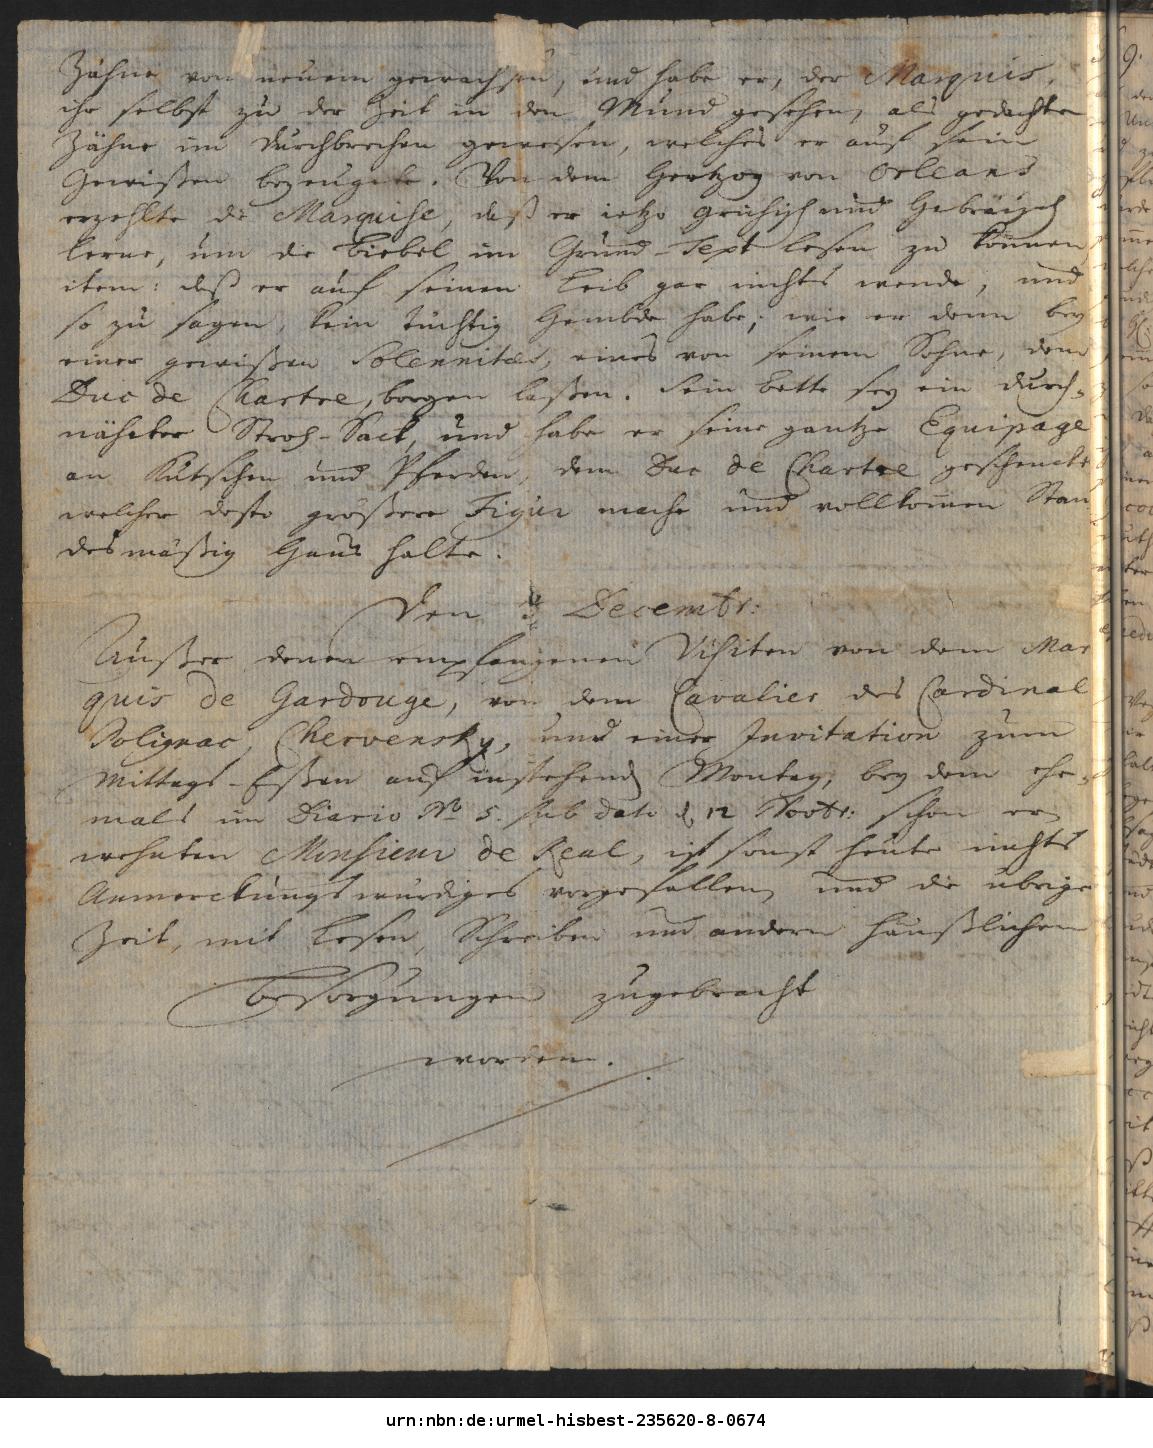 Zähne von neuem gewachsen, und habe er, der Marquis,
ihr selbst zu der Zeit in den Mund gesehen, als gedachte
Zähne im durchbrechen gewesen, welches er auf sein
Gewißen bezeugete. Von dem Hertzog von Orleans
erzehlte die Marquise, daß er ietzo Grichisch und Hebräisch
lerne, um die Biebel im Grund-Text lesen zu können,
item: daß er auf seinen Leib gar nichts wende, und
so zu sagen, kein tüchtig Hembde habe; wie er denn bey
einer gewißen Solennitaet, eines von seinem Sohne, dem
Duc de Chartre, borgen laßen. Sein Bette sey ein durch-
näheter Stroh-Sack, und habe er seine gantze Equipage
an Kutschen und Pferden, dem Duc de Chartre geschenckt
welcher desto größere Figur mache und vollkommen Stan
desmäßig Haus halte.
Den Decembr:
Außer denen empfangenen Visiten von dem Mar
quis de Gardouge, von dem Cavalier des Cardinal
Polignac, Chervensky, und einer Invitation zum
Mittags-Eßen auf instehend Montag, bey dem ehe-
mals im Diario No 5. sub dato d. 12 Novbr: schon er
wehnten Monsieur de Real, ist sonst heute nichts
Anmerckungswürdiges vorgefallen, und die übrige
Zeit, mit Lesen, Schreiben und andern häußlichen
Besorgungen zugebracht
worden.
urn:nbn:de:urmel-hisbest-235620-8-0674